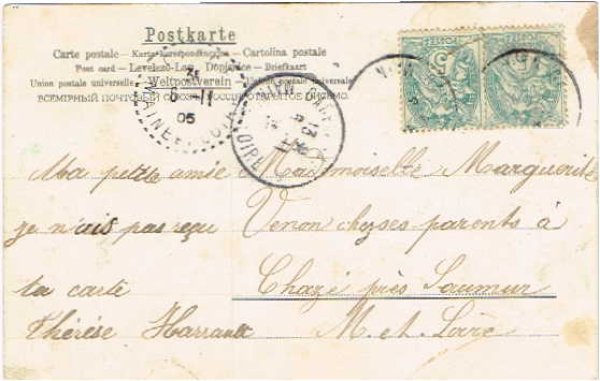 Postkarte
Carte postale — Karta korespondencyjna — Cartolina postale
Post card — Levelező-Lap — Dopisnice — Briefkaart
Union postale universelle Weltpostverein Unión postal universale
ВСЕМІРНЫЙ ПОЧТОВЫЙ СОЮЗЪ РОССІЯ ОТКРЫТОЕ ПИСЬМО.
6 - 11
05
LOIRE
13
Ma petite amie
je n'ais pas reçu
ta carte
Thérèse Harrault
Mademoiselle Marguerite
Venon chez ses parents à
Chazé près Saumur
M. et. Loire